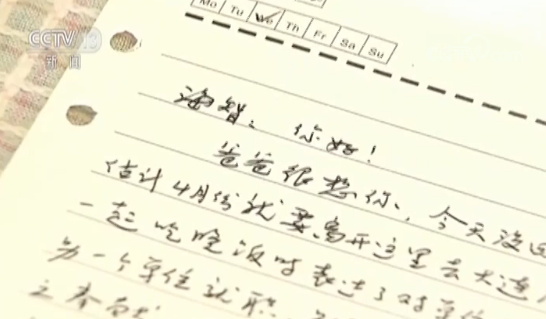 CCTV 13
新闻
Mo Tu We Th Fr Sa Su
海智:你好!
爸爸很想你,今天没
估计4月份就要离开这里去大连
一起吃晚饭时表达了对
另一个单位就职